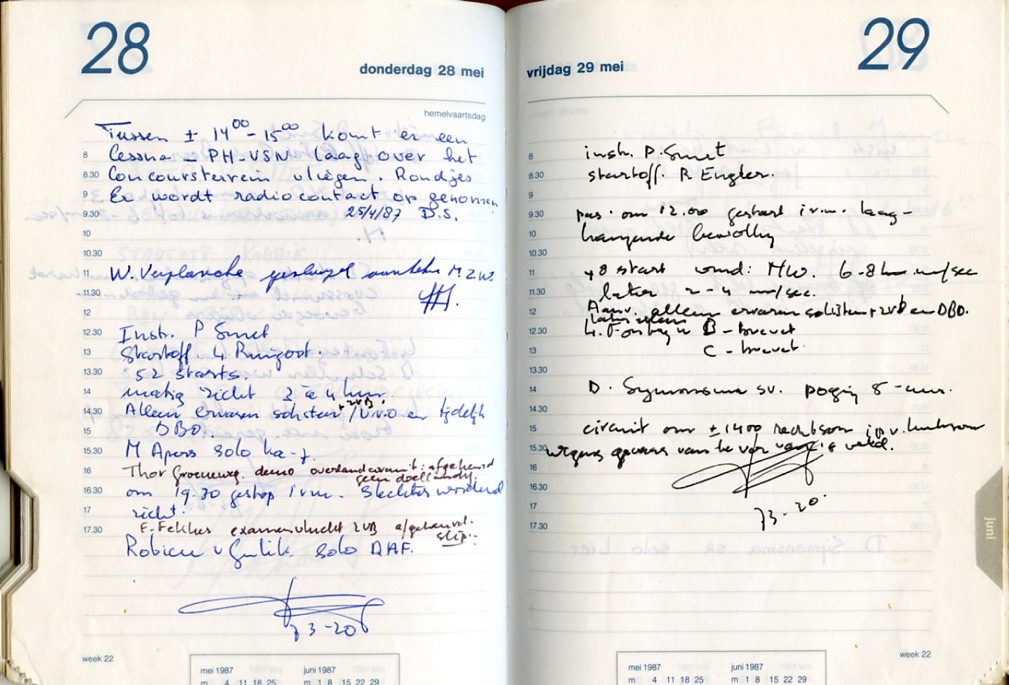 28
donderdag 28 mei
hemelvaartsdag
Tussen ± 14⁰⁰ - 15⁰⁰ komt er een
8 Cessna - PH-VSN laag over het
8.30 Concoursterrein vliegen. Rondjes
9 Er wordt radiocontact op genomen
9.30 25/4/87 D.S.
10
10.30
11 W. Verplancke geslaagd
11.30
12
12.30 Instr. P Smet
13 Startoff. 4 Ringoot.
13.30 52 starts.
14 matig zicht 3 à 4 km.
14.30 Alleen ervaren solisten + ZVB / en tijdelijk
15 DBO.
15.30 M Apers solo Ka-7.
16 Thor Groeneweg. demo overlandcommit: afgekeurd
geen doellanding.
16.30 om 19.30 gestopt i.v.m. Slechter wordend
17 zicht.
17.30 F. Fekkes examenvlucht ZVB afgekeurd.
slip.
v Gulik. Solo
73-20
week 22
mei 1987 juni 1987
m 4 11 18 25 m 1 8 15 22 29
29
vrijdag 29 mei
8 instr. P. Smet
8.30 startoff. R Engler.
9
9.30 pas om 12.00 gestart i.v.m. laag-
10 hangende bewolking
10.30
11 48 start wind: NW. 6-8 m/sec
11.30 later 2-4 m/sec.
12 alleen ervaren solisten + ZVB en DBO.
12.30 B - brevet
13 C - brevet
13.30
14 D. Symonsma sv. poging 5-uur.
14.30
15 circuit om ± 1400 rechtsom
15.30 wegens
16
16.30
17 73-20
17.30
juni
week 22
mei 1987 juni 1987
m 4 11 18 25 m 1 8 15 22 29